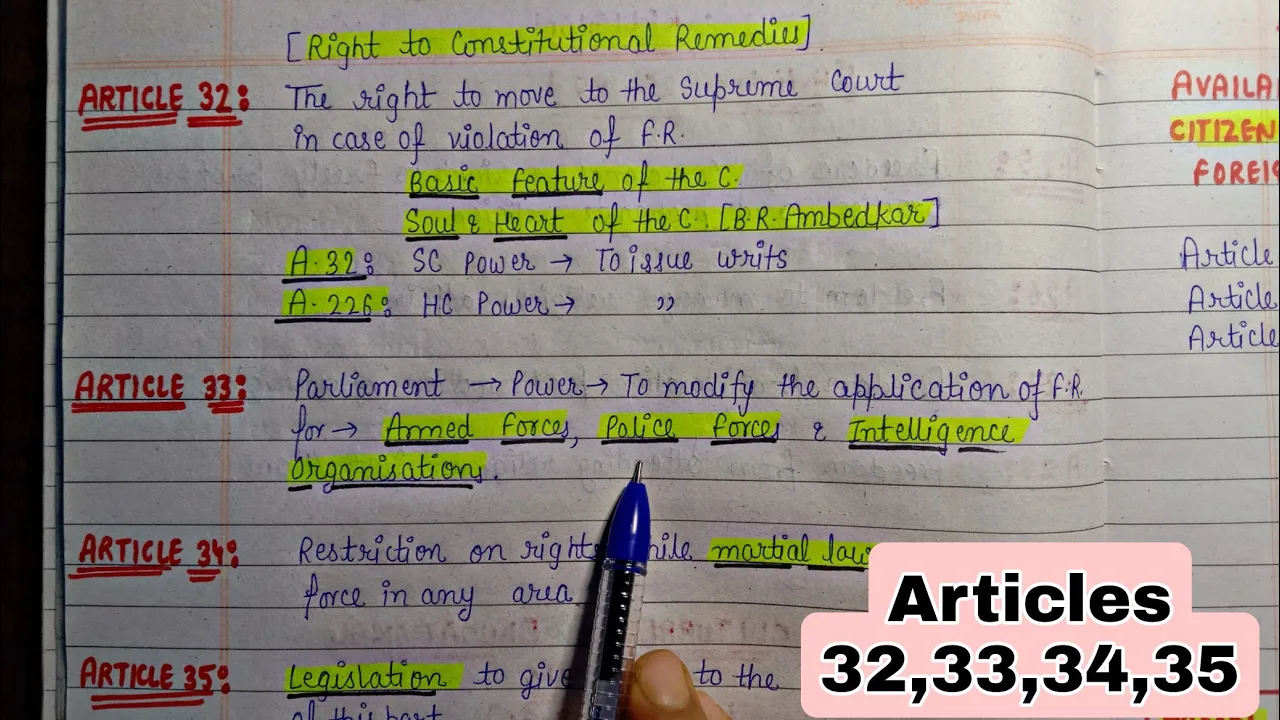 [Right to Constitutional Remedies]
ARTICLE 32: The right to move to the Supreme Court
in case of violation of F.R.
Basic feature of the C.
Soul & Heart of the C. [B.R. Ambedkar]
A.32: SC Power → To issue writs
A.226: HC Power → ,,
ARTICLE 33: Parliament → Power → To modify the application of F.R.
for → Armed forces, Police forces & Intelligence
Organisations.
ARTICLE 34: Restriction on rights martial law
force in any area
ARTICLE 35: Legislation to give to the
of this part
AVAILA
CITIZEN
FOREIG
Article
Article
Article
Articles
32,33,34,35